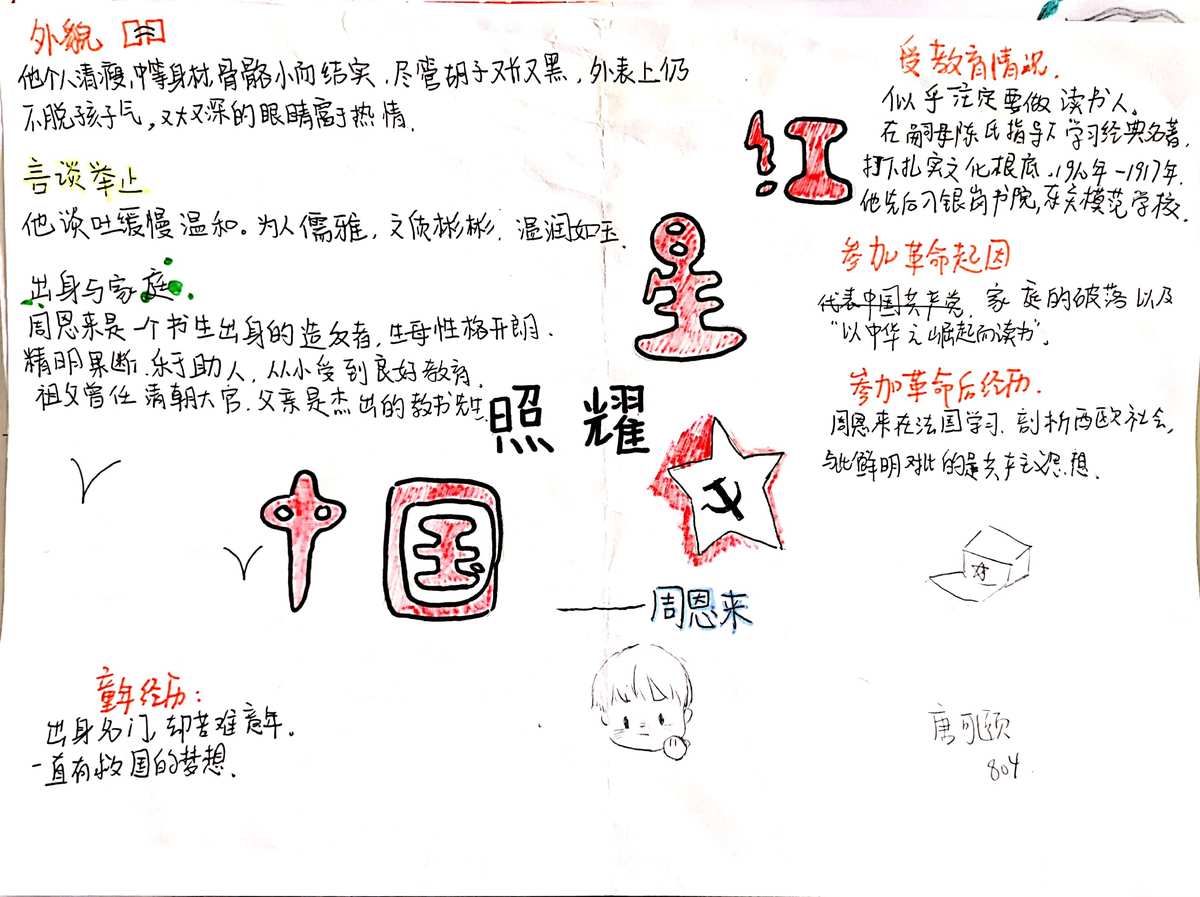 外貌
他个人清瘦,中等身材,骨骼小而结实,尽管胡子又长又黑,外表上仍
不脱孩子气,又大又深的眼睛富于热情.
言谈举止
他谈吐缓慢温和。为人儒雅,文质彬彬,温润如玉.
出身与家庭.
周恩来是一个书生出身的造反者,生母性格开朗.
精明果断.乐于助人,从小受到良好教育.
祖父曾任清朝大官.父亲是杰出的教书先生
红
星
照耀
中国
——周恩来
童年经历:
出身名门,却苦难童年。
一直有救国的梦想.
受教育情况.
似乎注定要做读书人。
在嗣母陈氏指导下学习经典名著,
打下扎实文化根底.1910年-1917年.
他先后入银岗书院,东关模范学校.
参加革命起因
代表中国共产党,家庭的破落以及
“以中华之崛起而读书”.
参加革命后经历.
周恩来在法国学习.剖析西欧社会,
与此鲜明对比的是共产主义思想.
唐可颐
804